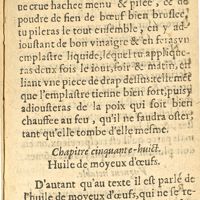 ne crue hachee menu & pilee, & de
poudre de fien de bœuf bien bruslee,
tu pileras le tout ensemble, en y ad-
ioustant de bon vinaigre & en feras vn
emplastre liquide, lequel tu applique-
ras deux fois le iour, soir & matin, en
liant vne piece de drap dessus: telle mét
que l'emplastre tienne bien fort, puis y
adiousteras de la poix qui soit bien
chauffee au feu, qu'il ne faudra oster,
tant qu'elle tombe d'elle mesme.
Chapitre cinquante-huict.
Huile de moyeux d'œufs.
D'autant qu'au texte il est parlé de
l'huile de moyeux d'œufs, qui ne se re-